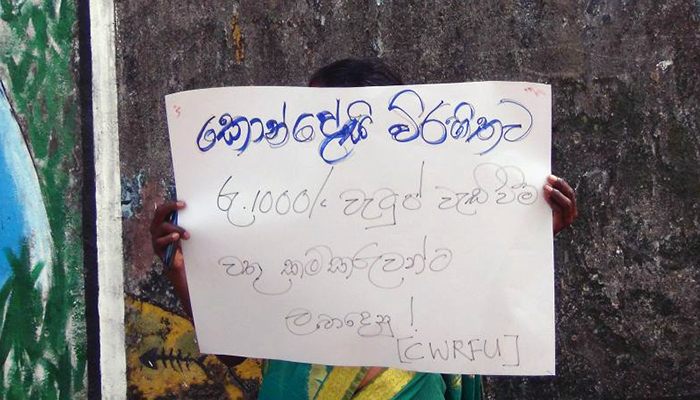 කොන්දේසි විරහිතව
රු.1000/- වැටුප් වැඩිවීම
වතු කම්කරුවන්ට
ලබාදෙනු!
[CWRFU]